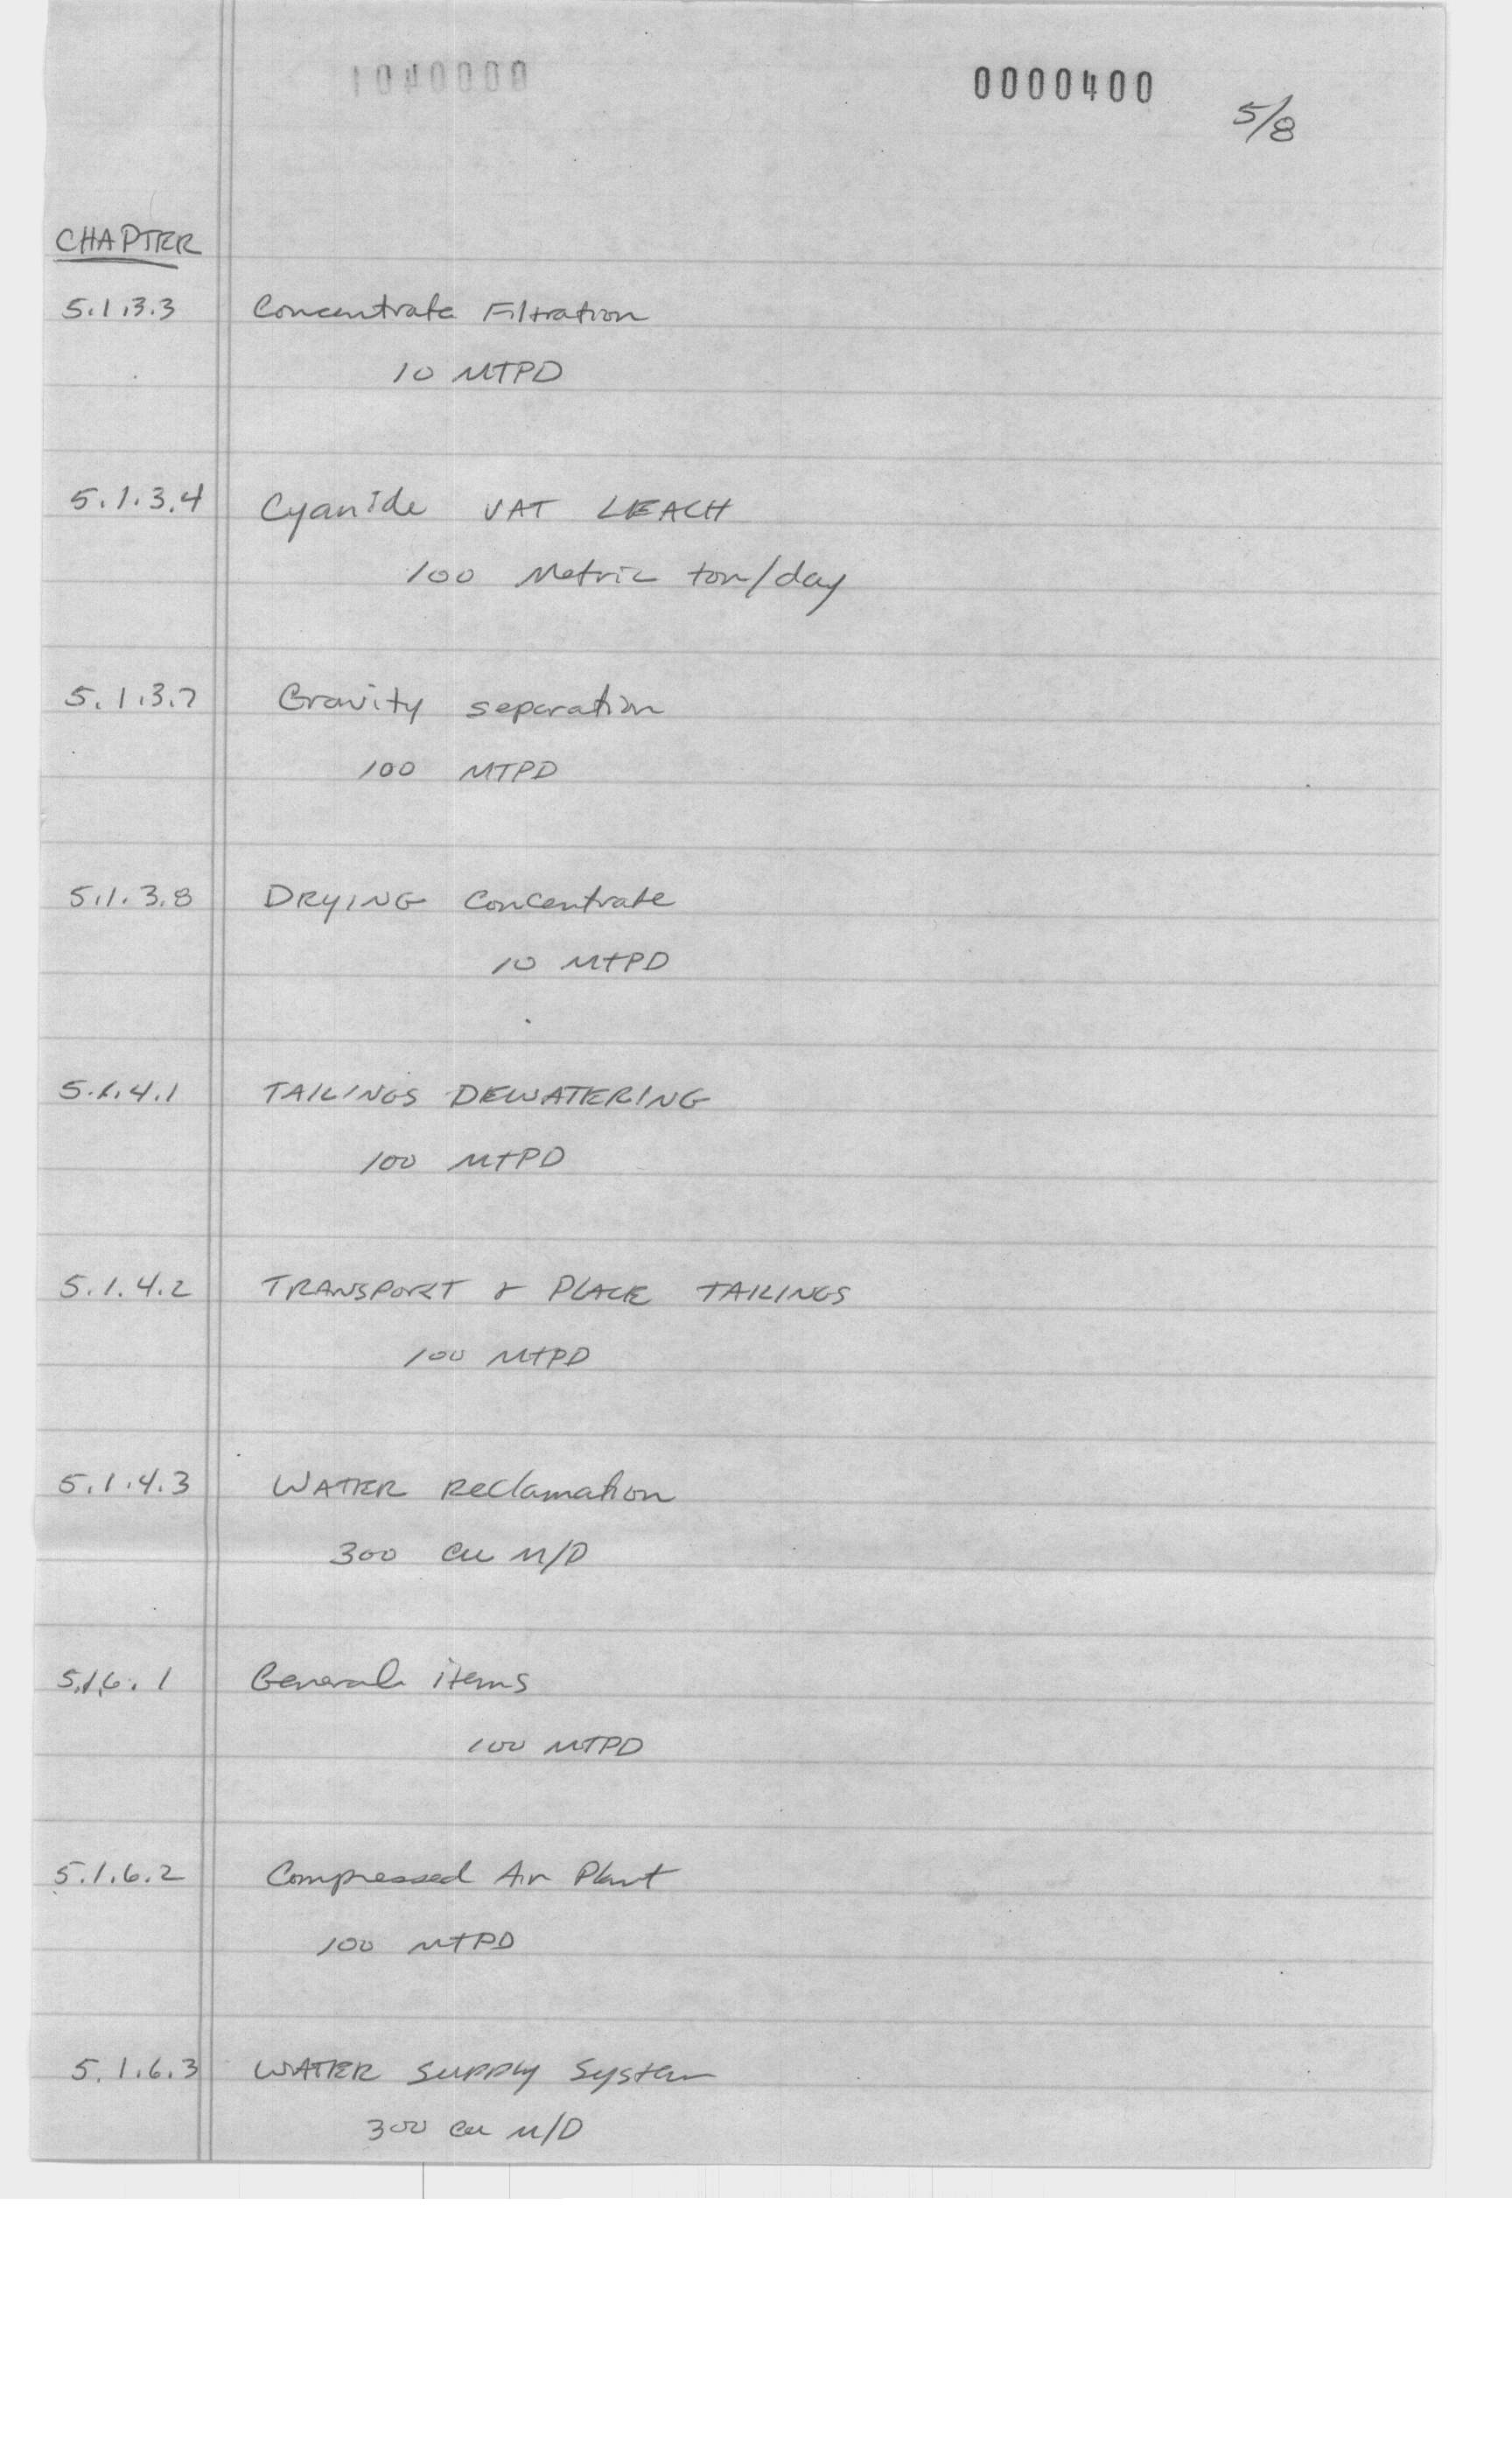 0000400
5/8
CHAPTER
5.1.3.3 Concentrate Filtration
10 MTPD
5.1.3.4 Cyanide VAT LEACH
100 Metric ton/day
5.1.3.7 Gravity separation
100 MTPD
5.1.3.8 DRYING Concentrate
10 MTPD
5.1.4.1 TAILINGS DEWATERING
100 MTPD
5.1.4.2 TRANSPORT & PLACE TAILINGS
100 MTPD
5.1.4.3 WATER Reclamation
300 cu M/D
5.1.6.1 General items
100 MTPD
5.1.6.2 Compressed Air Plant
100 MTPD
5.1.6.3 WATER SUPPLY System
300 cu M/D